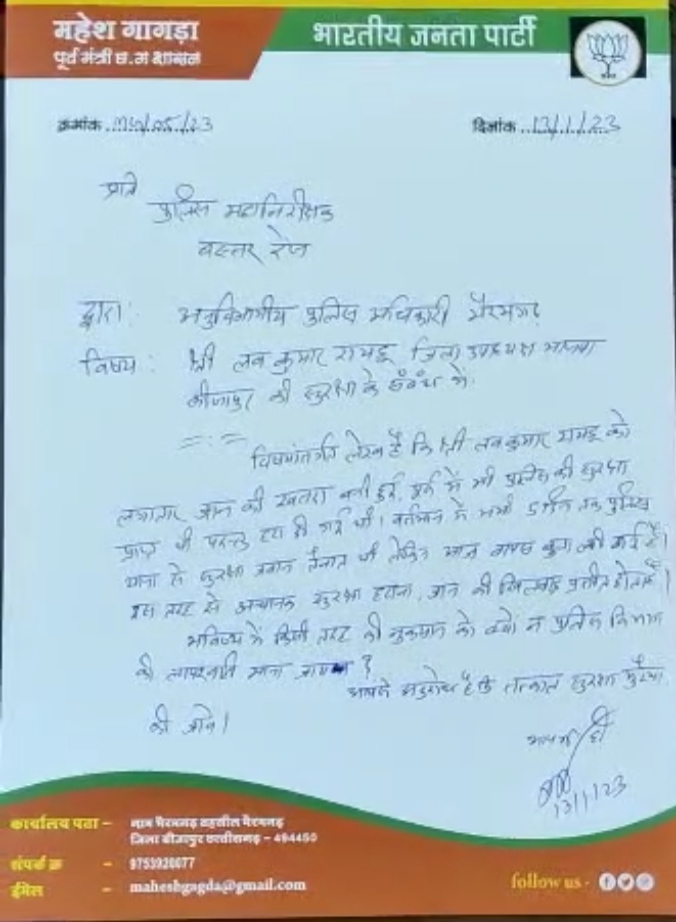 महेश गागड़ा
पूर्व मंत्री छ.ग शासन
भारतीय जनता पार्टी
क्रमांक /05/23
दिनांक 13/1/23
प्रति
पुलिस महानिरीक्षक
बस्तर रेंज
द्वारा: अनुविभागीय पुलिस अधिकारी भैरमगढ़
विषय: श्री लव कुमार रायडू जिला उपाध्यक्ष भाजपा
बीजापुर की सुरक्षा के संबंध में.
विषयांतर्गत लेख है कि श्री लवकुमार रायडू को
लगातार जान की खतरा बनी हुई, पूर्व में भी पुलिस की सुरक्षा
प्राप्त थी परन्तु हटा दी गई थी। वर्तमान में अभी तक पुलिस
थाना से सुरक्षा जवान तैनात थे लेकिन आज वापस बुला ली गई है।
इस तरह से अचानक सुरक्षा हटाना, जान की खिलवाड़ प्रतीत होता है।
भविष्य में किसी तरह की नुकसान को क्यों न पुलिस विभाग
की लापरवाही माना जाय ?
आपसे अनुरोध है कि तत्काल सुरक्षा मुहैया
की जावे।
13/1/23
कार्यालय पता – ग्राम भैरमगढ़ तहसील भैरमगढ़
जिला बीजापुर छत्तीसगढ़ – 494450
संपर्क क्र – 9753920077
ईमेल – maheshgagda@gmail.com
follow us -